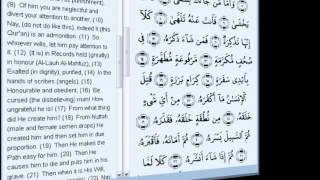 (9). Of him you are neglectful and
divert your attention to another, (10)
Nay, (do not do like this), indeed it (this
Qur'an) is an admonition. (11) So
whoever wills, let him pay attention to
it. (12) (It is) in Records held (greatly)
in honour (Al-Lauh Al-Mahfuz), (13)
Exalted (in dignity), purified, (14) In the
hands of scribes (angels). (15)
Honourable and obedient. (16) Be
cursed (the disbelieving) man! How
ungrateful he is! (17) From what thing
did He create him? (18) From Nutfah
(male and female semen drops) He
created him and then set him in due
proportion. (19) Then He makes the
Path easy for him. (20) Then He
causes him to die and puts him in his
grave. (21) Then when it is His Will,
(22) Nay,
يَخْشَىٰ فَأَنتَ عَنْهُ تَلَهَّىٰ كَلَّا
إِنَّهَا تَذْكِرَةٌ فَمَن شَاءَ ذَكَرَهُ فِي
صُحُفٍ مُّكَرَّمَةٍ مَّرْفُوعَةٍ مُّطَهَّرَةٍ
بِأَيْدِي سَفَرَةٍ كِرَامٍ بَرَرَةٍ قُتِلَ
الْإِنسَانُ مَا أَكْفَرَهُ مِنْ أَيِّ شَيْءٍ
خَلَقَهُ مِن نُّطْفَةٍ خَلَقَهُ فَقَدَّرَهُ
ثُمَّ السَّبِيلَ يَسَّرَهُ ثُمَّ أَمَاتَهُ فَأَقْبَرَهُ
ثُمَّ إِذَا شَاءَ أَنشَرَهُ كَلَّا لَمَّا